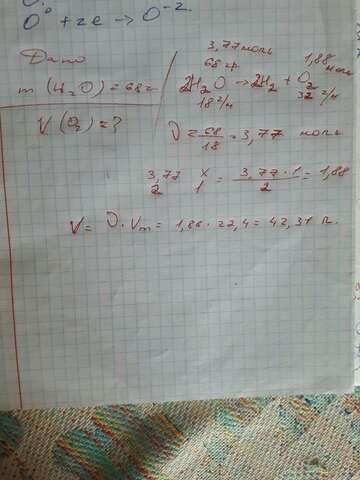 O⁰ + 2e → O⁻².
Дано
m (H₂O) = 68г
V (O₂) = ?
3,77 моль
68 гр.
1,88 моль
2H₂O → 2H₂ + O₂
18 г/м
32 г/м
ν = 68/18 = 3,77 моль
3,77 x
2 1
= 3,77 · 1 / 2 = 1,88
V = ν · Vm = 1,88 · 22,4 = 42,31 л.